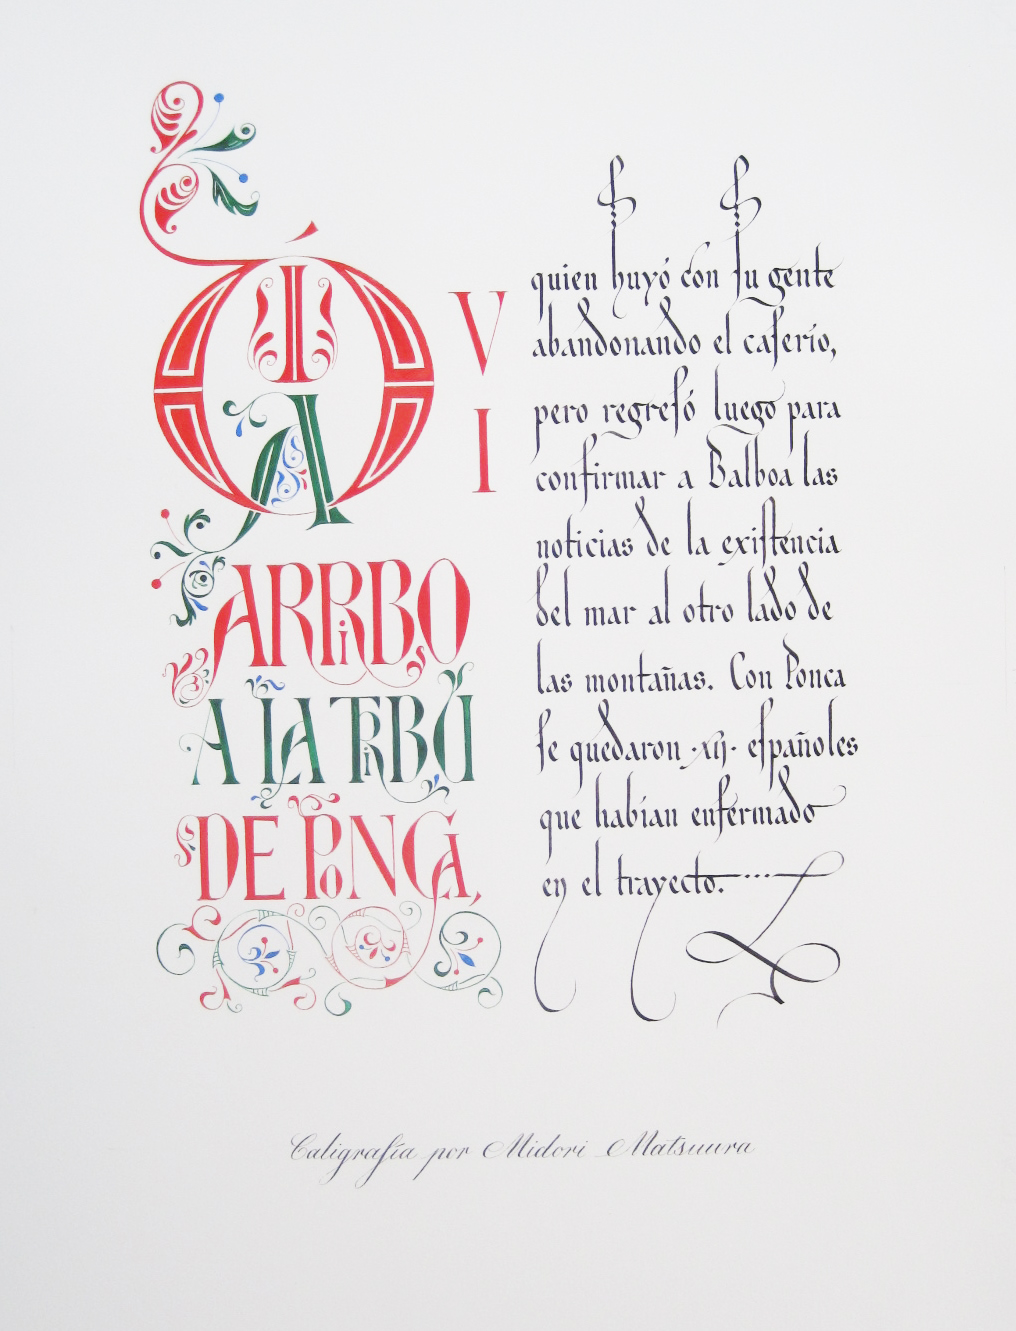 DÍA VI
ARRIBO
A LA TRIBU
DE PONCA,
quien huyó con ſu gente
abandonando el caſerío,
pero regreſó luego para
confirmar a Balboa las
noticias de la exiſtencia
del mar al otro lado de
las montañas. Con Ponca
ſe quedaron ·xij· eſpañoles
que habían enfermado
en el trayecto.
Caligrafía por Midori Matsuura